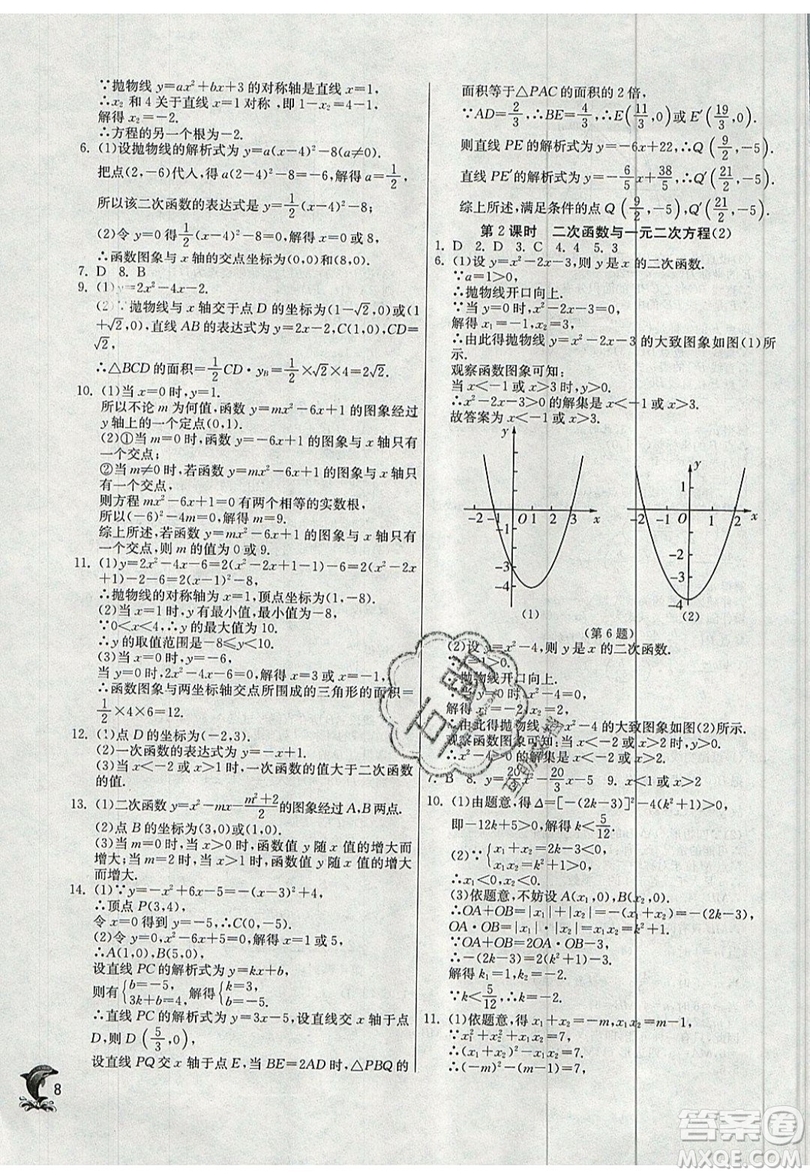 ∵抛物线 y=ax²+bx+3 的对称轴是直线 x=1,
∴x₂ 和 4 关于直线 x=1 对称,即 1-x₂=4-1,
解得 x₂=-2.
∴方程的另一个根为-2.
6. (1)设抛物线的解析式为 y=a(x-4)²-8(a≠0).
把点(2,-6)代人,得 a(2-4)²-8=-6,解得 a=1/2.
所以该二次函数的表达式是 y=1/2(x-4)²-8.
(2)令 y=0,得 1/2(x-4)²-8=0,解得 x₁=0,x₂=8.
∴函数图象与 x 轴的交点坐标为(0,0),(8,0).
7. D 8. B
9. (1)y=2x²-4x-2.
(2)∵抛物线与 x 轴交于点 D 的坐标为(1-√2,0)或(1
+√2,0),直线 AB 的表达式为 y=2x-2,C(1,0),CD=
√2,
∴△BCD 的面积=1/2CD·y_B=1/2×√2×4=2√2.
10. (1)当 x=0 时,y=1.
所以不论 m 为何值,函数 y=mx²-6x+1 的图象经过
y 轴上的一个定点(0,1).
(2)①当 m=0 时,函数 y=-6x+1 的图象与 x 轴只有
一个交点;
②当 m≠0 时,若函数 y=mx²-6x+1 的图象与 x 轴只
有一个交点,
则方程 mx²-6x+1=0 有两个相等的实数根,
所以(-6)²-4m=0,解得 m=9.
综上所述,若函数 y=mx²-6x+1 的图象与 x 轴只有
一个交点,则 m 的值为 0 或 9.
11. (1)y=2x²-4x-6=2(x²-2x+1-1)-6=2(x²-2x
+1)-2-6=2(x-1)²-8.
∴抛物线的对称轴为 x=1,顶点坐标为(1,-8).
(2)当 x=1 时,y 有最小值,最小值为-8,
∵0<x<4,∴y 的最大值为 10.
∴y 的取值范围是-8≤y<10.
(3)当 x=0 时,y=-6,
当 y=0 时,2x²-4x-6=0,解得 x=3 或 x=-1.
∴函数图象与两坐标轴交点所围成的三角形的面积=
1/2×4×6=12.
12. (1)点 D 的坐标为(-2,3).
(2)一次函数的表达式为 y=-x+1.
(3)当 x<-2 或 x>1 时,一次函数的值大于二次函数
的值.
13. (1)二次函数 y=x²-x-(m²+2)/m 的图象经过 A,B 两点.
(2)点 B 的坐标为(3,0)或(4,0).
(3)当点 B 为(3,0)时,函数值 y 随 x 值的增大而
增大;当点 B 为(4,0)时,函数值 y 随 x 值的增大而
增大.
14. (1)∵y=-x²+6x-5=-(x-3)²+4,
∴顶点 P(3,4),
令 x=0 得到 y=-5,∴C(0,-5).
(2)令 y=0,x²-6x+5=0,解得 x=1 或 x=5,
∴A(1,0),B(5,0),
设直线 PC 的解析式为 y=kx+b,
则有{b=-5, 3k+b=4,解得{k=3, b=-5,
∴直线 PC 的解析式为 y=3x-5,设直线交 x 轴于点
D,则 D(5/3,0),
设直线 PQ 交 x 轴于点 E,当 BE=2AD时,△PBQ 的
8
面积等于△PAC 的面积的 2 倍,
∵AD=2/3,∴BE=4/3,∴E(11/3,0)或 E′(19/3,0),
则直线 PE 的解析式为 y=-6x+22,∴Q(9/2,-5),
直线 PE′的解析式为 y=-6/5x+38/5,∴Q′(21/2,-5).
综上所述,满足条件的点 Q(9/2,-5),Q′(21/2,-5).
第 2 课时 二次函数与一元二次方程(2)
1. D 2. D 3. C 4. 4 5. 3
6. (1)设 y=x²-2x-3,则 y 是 x 的二次函数.
∵a=1>0,
∴抛物线开口向上.
∵当 y=0 时,x²-2x-3=0,
解得 x₁=-1,x₂=3.
∴由此得抛物线 y=x²-2x-3 的大致图象如图(1)所
示.
观察函数图象可知:
当 x<-1 或 x>3 时,y>0.
∴x²-2x-3>0 的解集是 x<-1 或 x>3.
故答案为 x<-1 或 x>3.
(1)
(2)
(第 6 题)
(2)设 y=x²-4,则 y 是 x 的二次函数.
∵a=1>0,
∴抛物线开口向上.
当 y=0 时,x²-4=0,
解得 x₁=-2,x₂=2.
∴由此得抛物线 y=x²-4 的大致图象如图(2)所示.
观察函数图象可知:当 x<-2 或 x>2 时,y>0.
10. (1)由题意,得 Δ=[-(2k-3)]²-4(k²+1)>0,
即-12k+5>0,解得 k<5/12.
(2)∵{x₁+x₂=2k-3<0, x₁x₂=k²+1>0,
∴x₁<0,x₂<0.
(3)依题意,不妨设 A(x₁,0),B(x₂,0).
∴OA+OB=|x₁|+|x₂|=-(x₁+x₂)=-(2k-3),
OA·OB=|-x₁||x₂|=x₁x₂=k²+1,
∵OA+OB=2OA·OB-3,
∴-(2k-3)=2(k²+1)-3,
解得 k₁=1,k₂=-2.
∵k<5/12,∴k=-2.
11. (1)依题意,得 x₁+x₂=-m,x₁x₂=m-1,
∵x₁²+x₂²=17,
∴(x₁+x₂)²-2x₁x₂=17,
∴(-m)²-2(m-1)=17,
答案圈
MXQE.COM